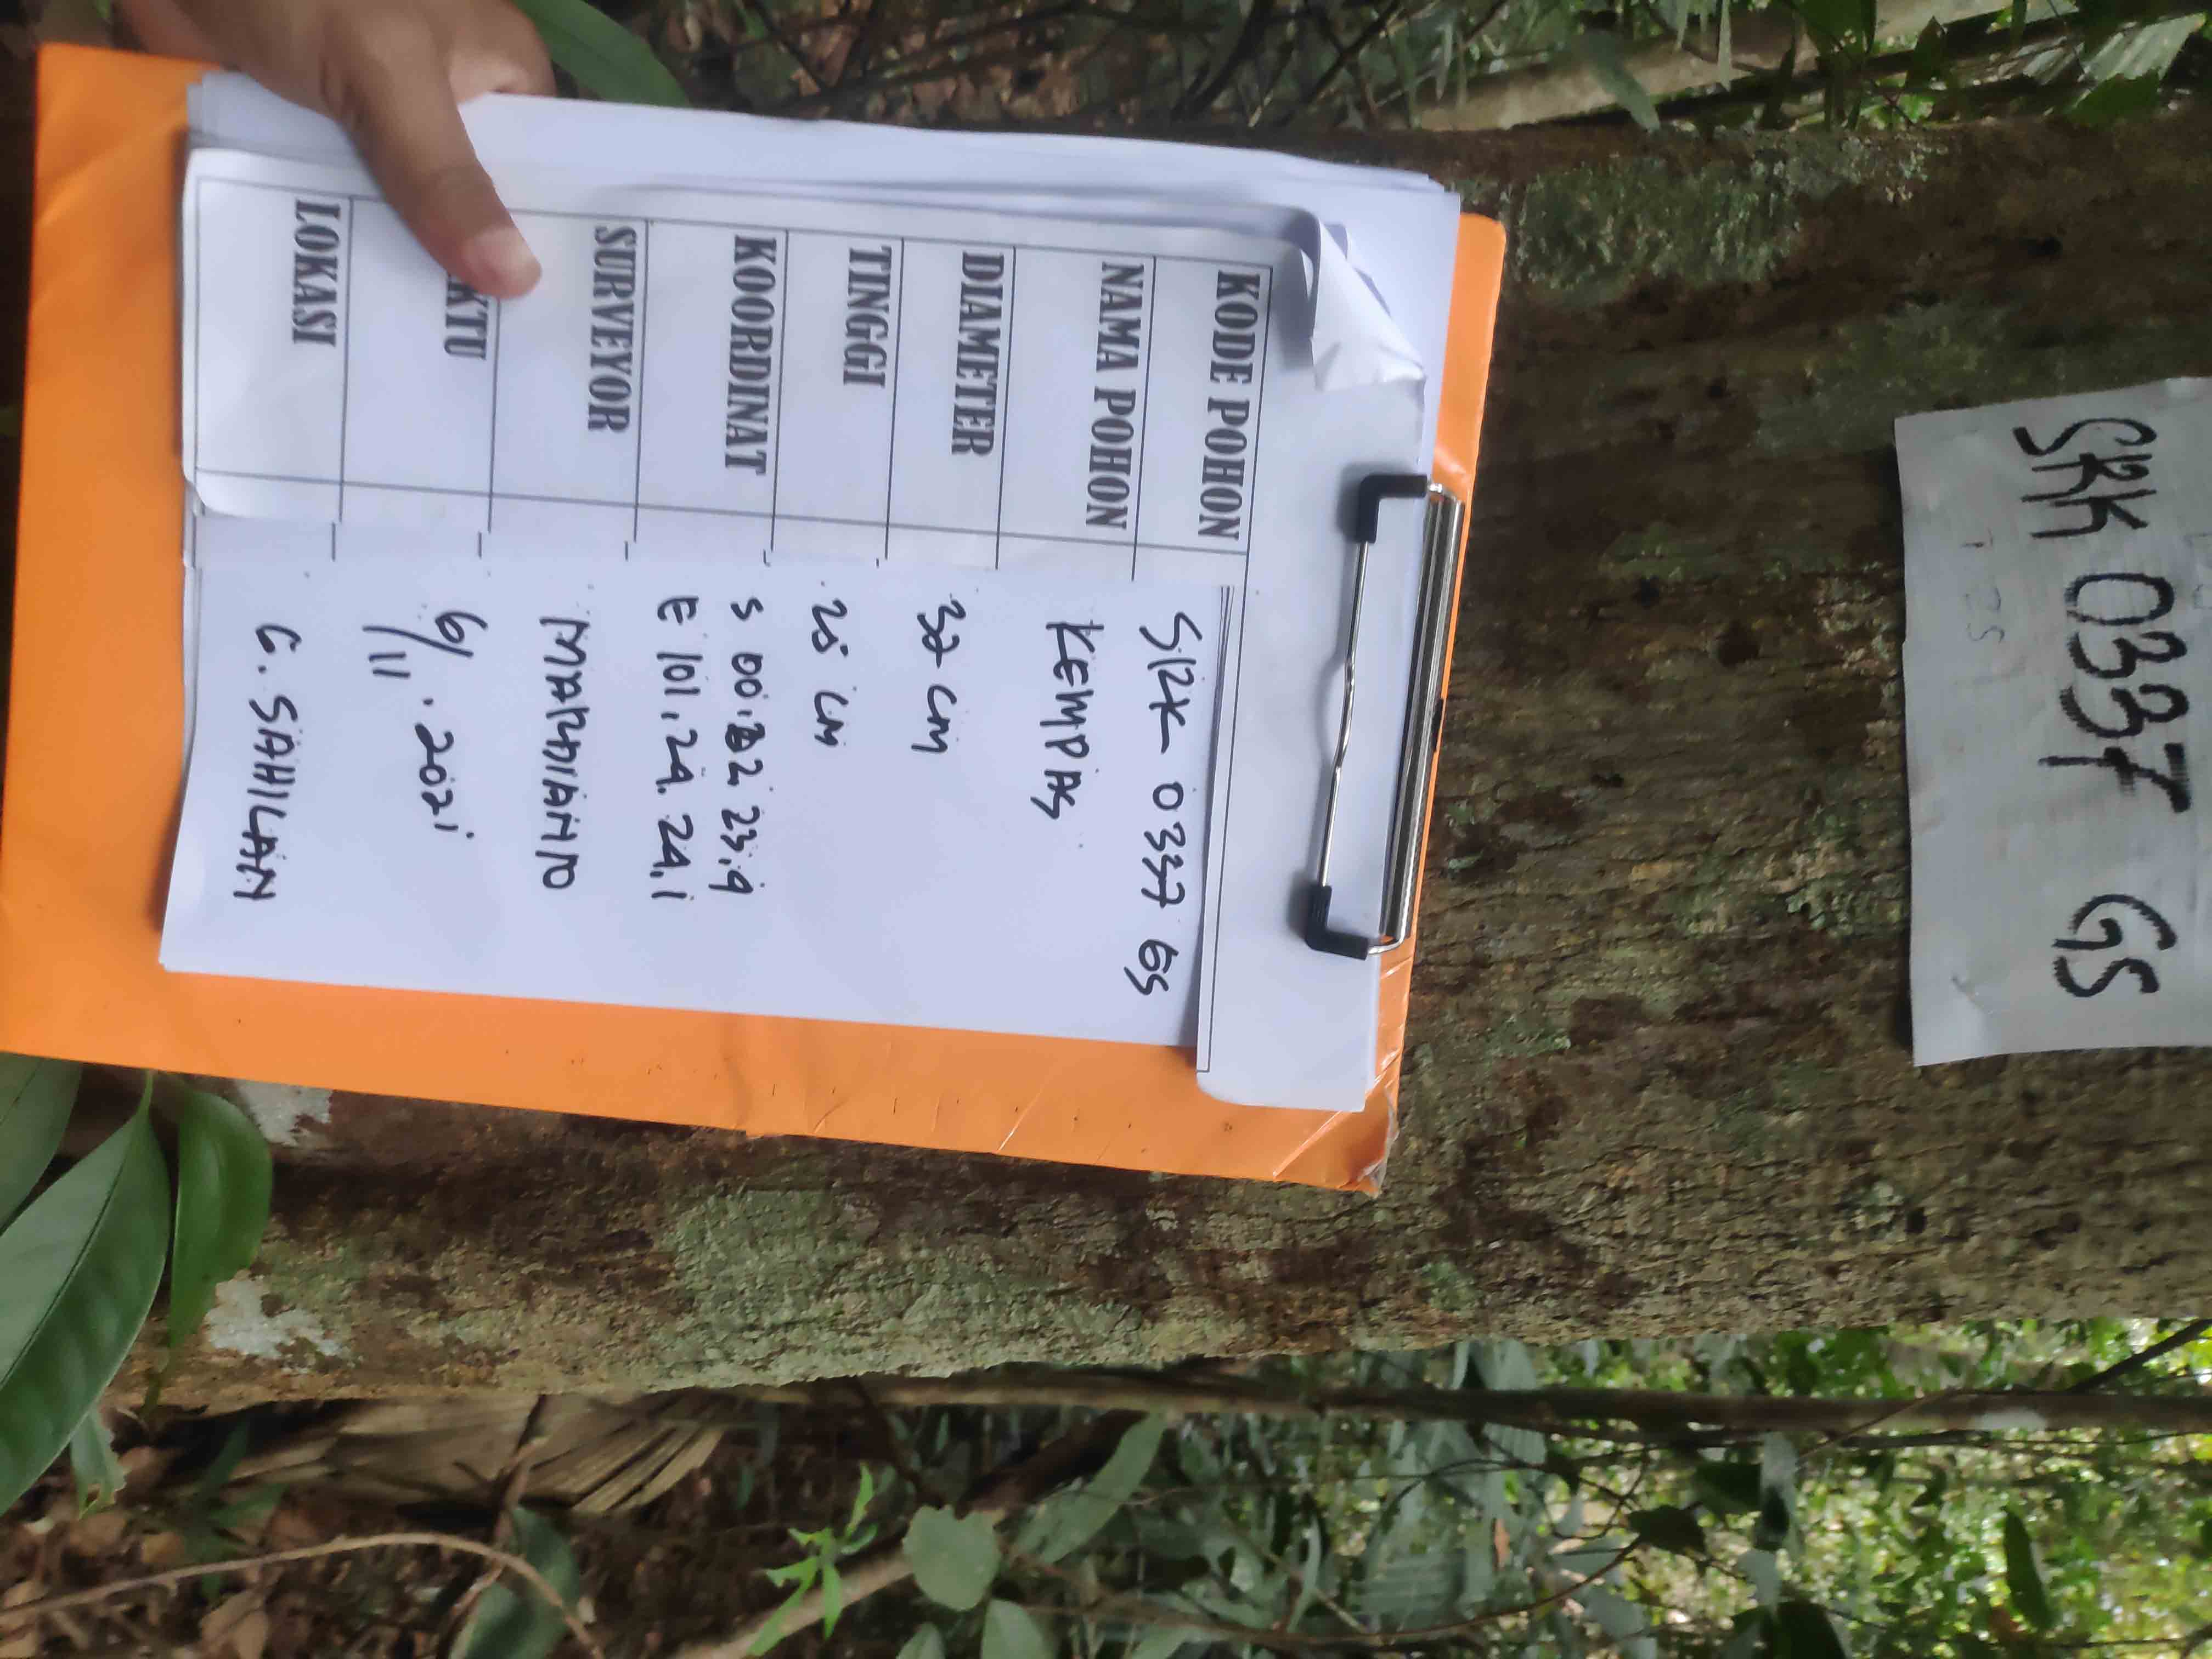 SRK 0337 GS
KODE POHON
SRK 0337 GS
NAMA POHON
KEMPAS
DIAMETER
32 CM
TINGGI
25 CM
KOORDINAT
S 00. 23.9
E 101.24. 24.1
SURVEYOR
MARDIANTO
KTU
6/11.2021
LOKASI
G. SAHILAN